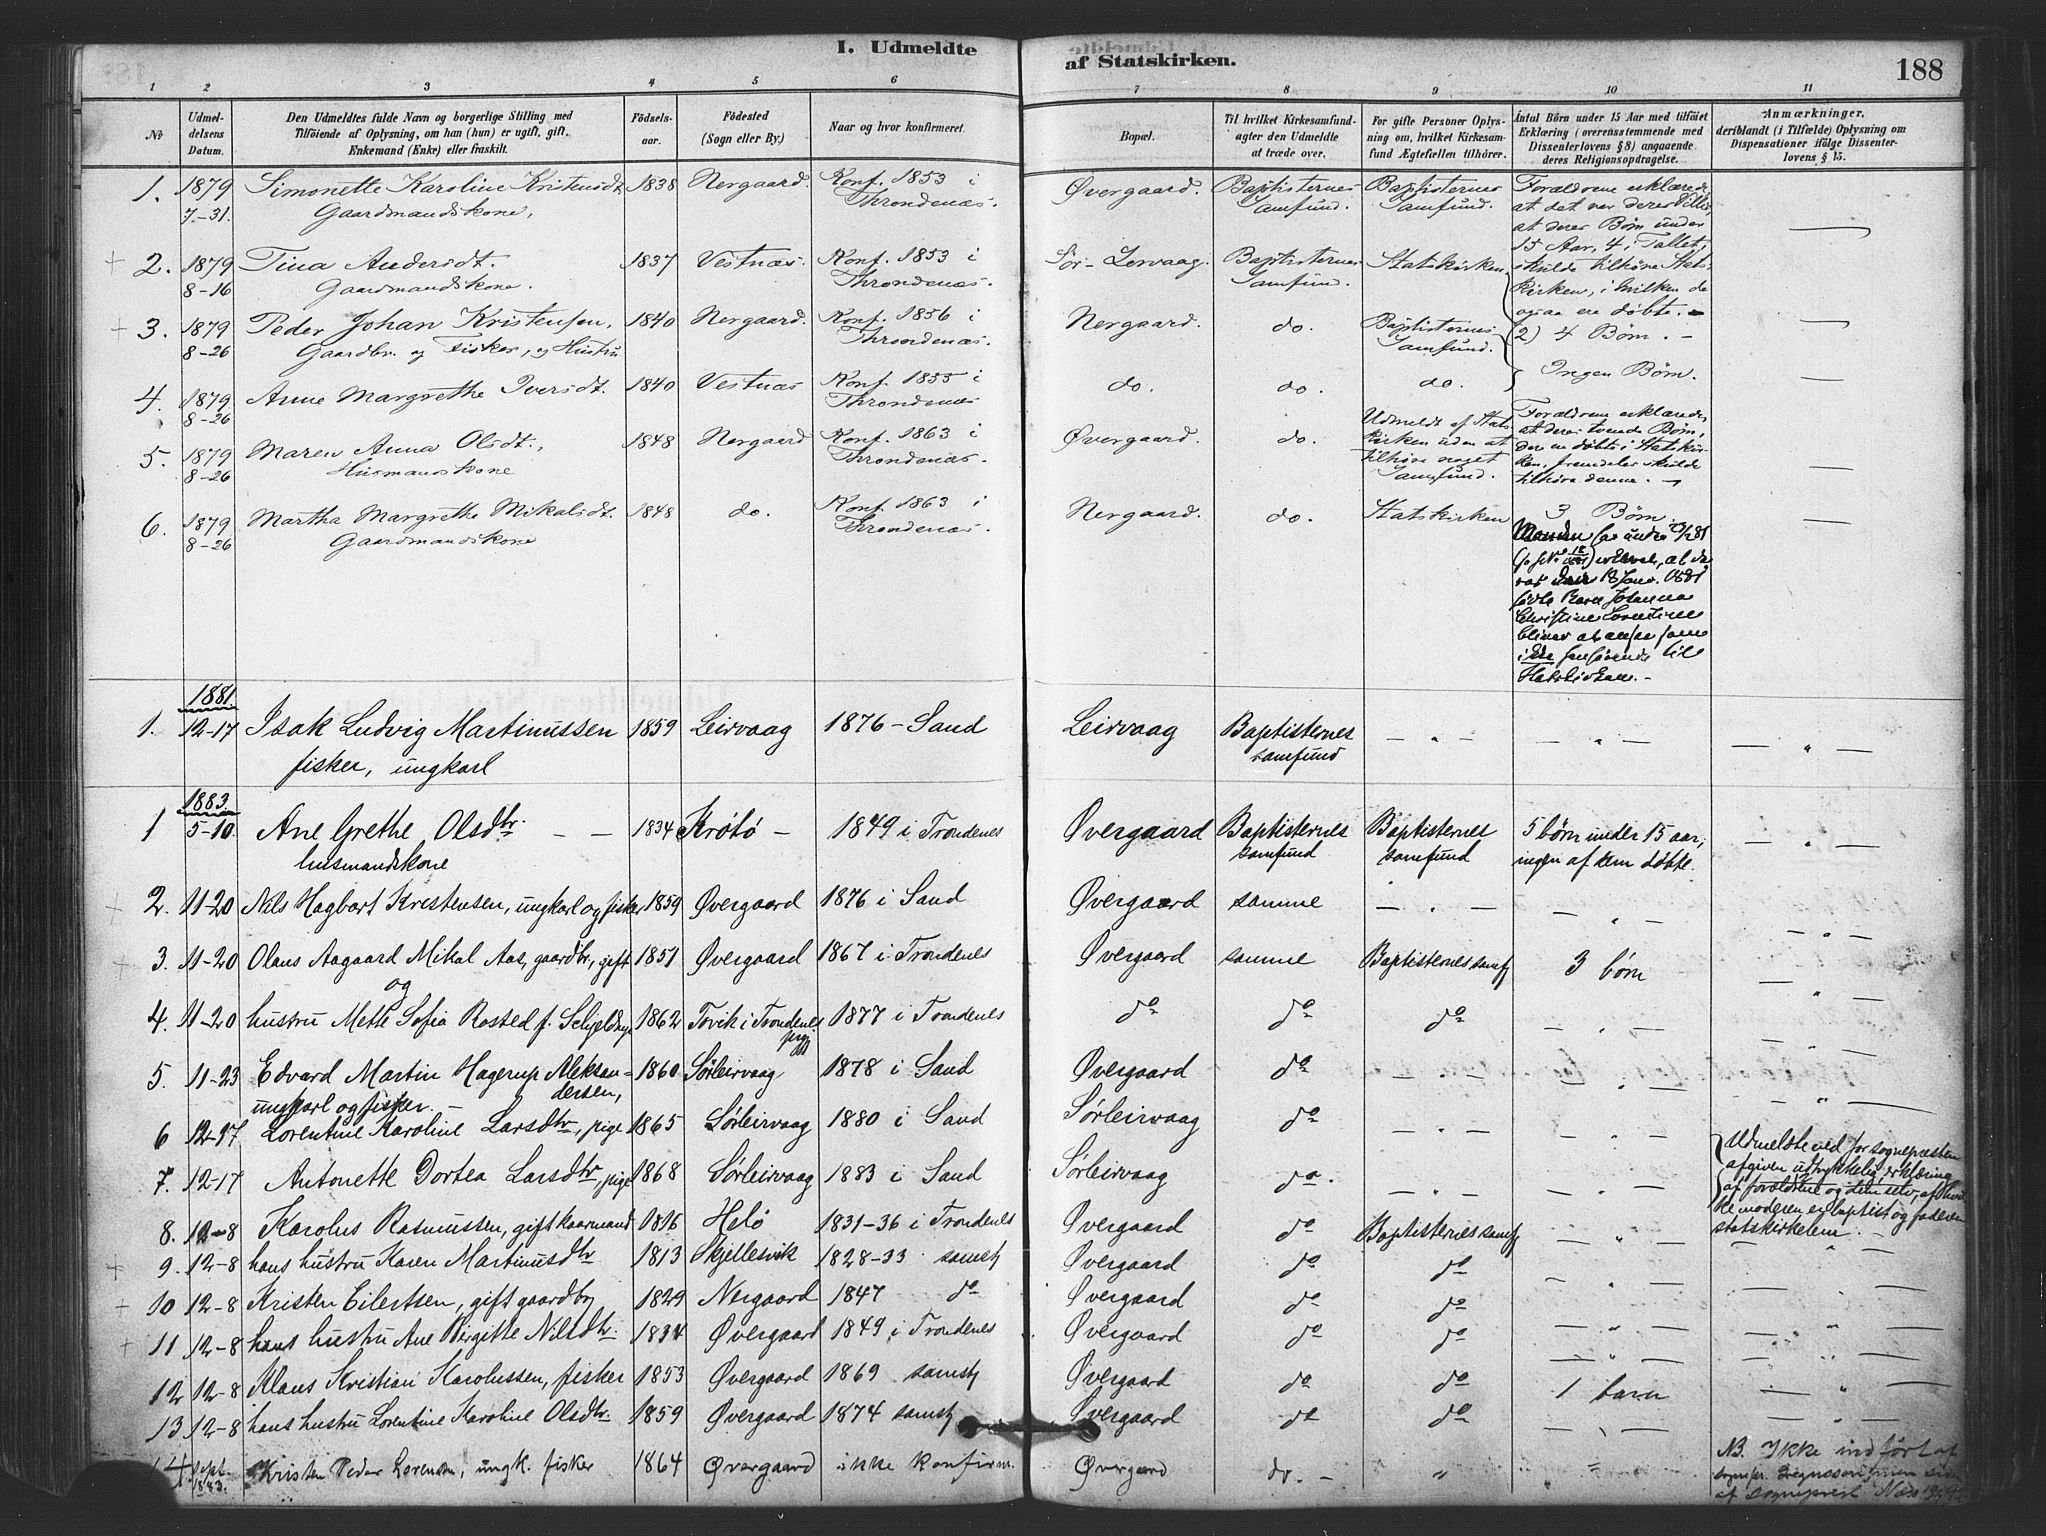 I. Udmeldte
af Statskirken.
188
1 2 3 4 5 6 7 8 9 10 11
No
Udmel-
delsens
Datum.
Den Udmeldtes fulde Navn og borgerlige Stilling med
Tilföiende af Oplysning, om han (hun) er ugift, gift,
Enkemand (Enke) eller fraskilt.
Födsels-
aar.
Födested
(Sogn eller By.)
Naar og hvor konfirmeret.
Bopæl.
Til hvilket Kirkesamfund-
agter den Udmeldte
at træde over.
For gifte Personer Oplys-
ning om, hvilket Kirkesam-
fund Ægtefællen tilhörer.
Antal Börn under 15 Aar med tilföiet
Erklæring (overensstemmende med
Dissenterlovens § 8) angaaende
deres Religionsopdragelse.
Anmærkninger,
deriblandt (i Tilfælde) Oplysning om
Dispensationer ifölge Dissenter-
lovens § 15.
1. 1879 7-31 Simonette Karoline Kristensdt. 1838 Nergaard. Konf. 1853 i Throndenæs. Øvergaard. Baptisternes Samfund. Baptisternes Samfund.
Gaardmandskone,
Forældrene erklærede,
at det var deres Villie,
at deres Børn under
15 Aar, 4 i Tallet,
skulde tilhøre Stats-
kirken, i hvilken de
ogsaa ere døbte.
2. 1879 8-16 Tina Andersdt. 1837 Vestnæs. Konf. 1853 i Throndenæs. Sør-Lervaag. Baptisternes Samfund. Statskirken
Gaardmandskone.
(2) 4 Børn.
3. 1879 8-26 Peder Johan Kristensen, 1840 Nergaard. Konf. 1856 i Throndenæs. Nergaard. do. Baptisternes Samfund.
Gaardbr. og Fisker, og Hustru
4. 1879 8-26 Anne Margrethe Iversdt. 1840 Vestnæs Konf. 1855 i Throndenæs do. do. do. Ingen Børn.
5. 1879 8-26 Maren Anna Olsdt., 1848 Nergaard Konf. 1863 i Throndenæs. Øvergaard. do.
Husmandskone
Udmeldt af Stats-
kirken uden at
tilhøre noget
Samfund.
Forældrene erklærede,
at deres tvende Børn,
der ere døbte i Statskir-
ken, fremdeles skulde
tilhøre denne.
6. 1879 8-26 Martha Margrethe Mikalsdt. 1848 do. Konf. 1863 i Throndenæs. Nergaard. do. Statskirken 3 Børn.
Gaardmandskone
Johanna
Christine Lorentine
Statskirken.
1881.
1. 12-17 Isak Ludvig Martinussen 1859 Leirvaag 1876 - Sand Leirvaag Baptisternes samfund
fisker, ungkarl
1883.
1 5-10. Ane Grethe Olsdtr. 1834 Krøtø - 1849 i Trondenes Øvergaard Baptisternes samfund Baptisternes samfund 5 børn under 15 aar;
husmandskone
ingen af dem døbte.
2. 11-20 Nils Hagbart Kristensen, ungkarl og fisker 1859 Øvergaard 1876 i Sand Øvergaard samme
3. 11-20 Olaus Aagaard Mikal Aas, gaardbr., gift 1851 Øvergaard 1867 i Trondenes Øvergaard samme Baptisternes samf. 3 børn
og
4. 11-20 hustru Mette Sofia Rosted f. 1862 Tovik i Trondenes 1877 i Trondenes do do do
5. 11-23 Edvard Martin Hagerup Aleksan- 1860 Sørleirvaag 1878 i Sand Øvergaard do
dersen,
ungkarl og fisker.
6 12-17 Lorentine Karoline Larsdtr, pige 1865 Sørleirvaag 1880 i Sand Sørleirvaag do
7. 12-17 Antonette Dortea Larsdtr, pige 1868 Sørleirvaag 1883 i Sand Sørleirvaag do.
Udmeldte ved for sognepræsten
afgiven udtrykkelig erklæring
af forældrene og dem selv, af hvil-
ke moderen er baptist og faderen
statskirkelem.
8. 12-8 Karolus Rasmussen, gift kaarmand 1816 Helø 1831-36 i Trondenes Øvergaard do Baptisternes samf.
9. 12-8 hans hustru Karen Martinusdtr 1813 Skjellesvik 1828-33 samst. Øvergaard do do
10 12-8 Kristen Eilertsen, gift gaardbr. 1829 Nergaard 1847 do Øvergaard do do
11 12-8 hans hustru Ane Birgitte Nilsdtr. 1834 Øvergaard 1849 i Trondenes Øvergaard do do
12 12-8 Klaus Kristian Karolussen, fisker 1853 Øvergaard 1869 samst. Øvergaard do do 1 barn
13 12-8 hans hustru Lorentine Karoline Olsdtr. 1859 Øvergaard 1874 samst. Øvergaard do do
14 sept. 1883. Kristen Peder Lorentsen, ungk. fisker 1864 Øvergaard ikke konfirm. Øvergaard do.
NB. Ikke indført af
af sogneprest